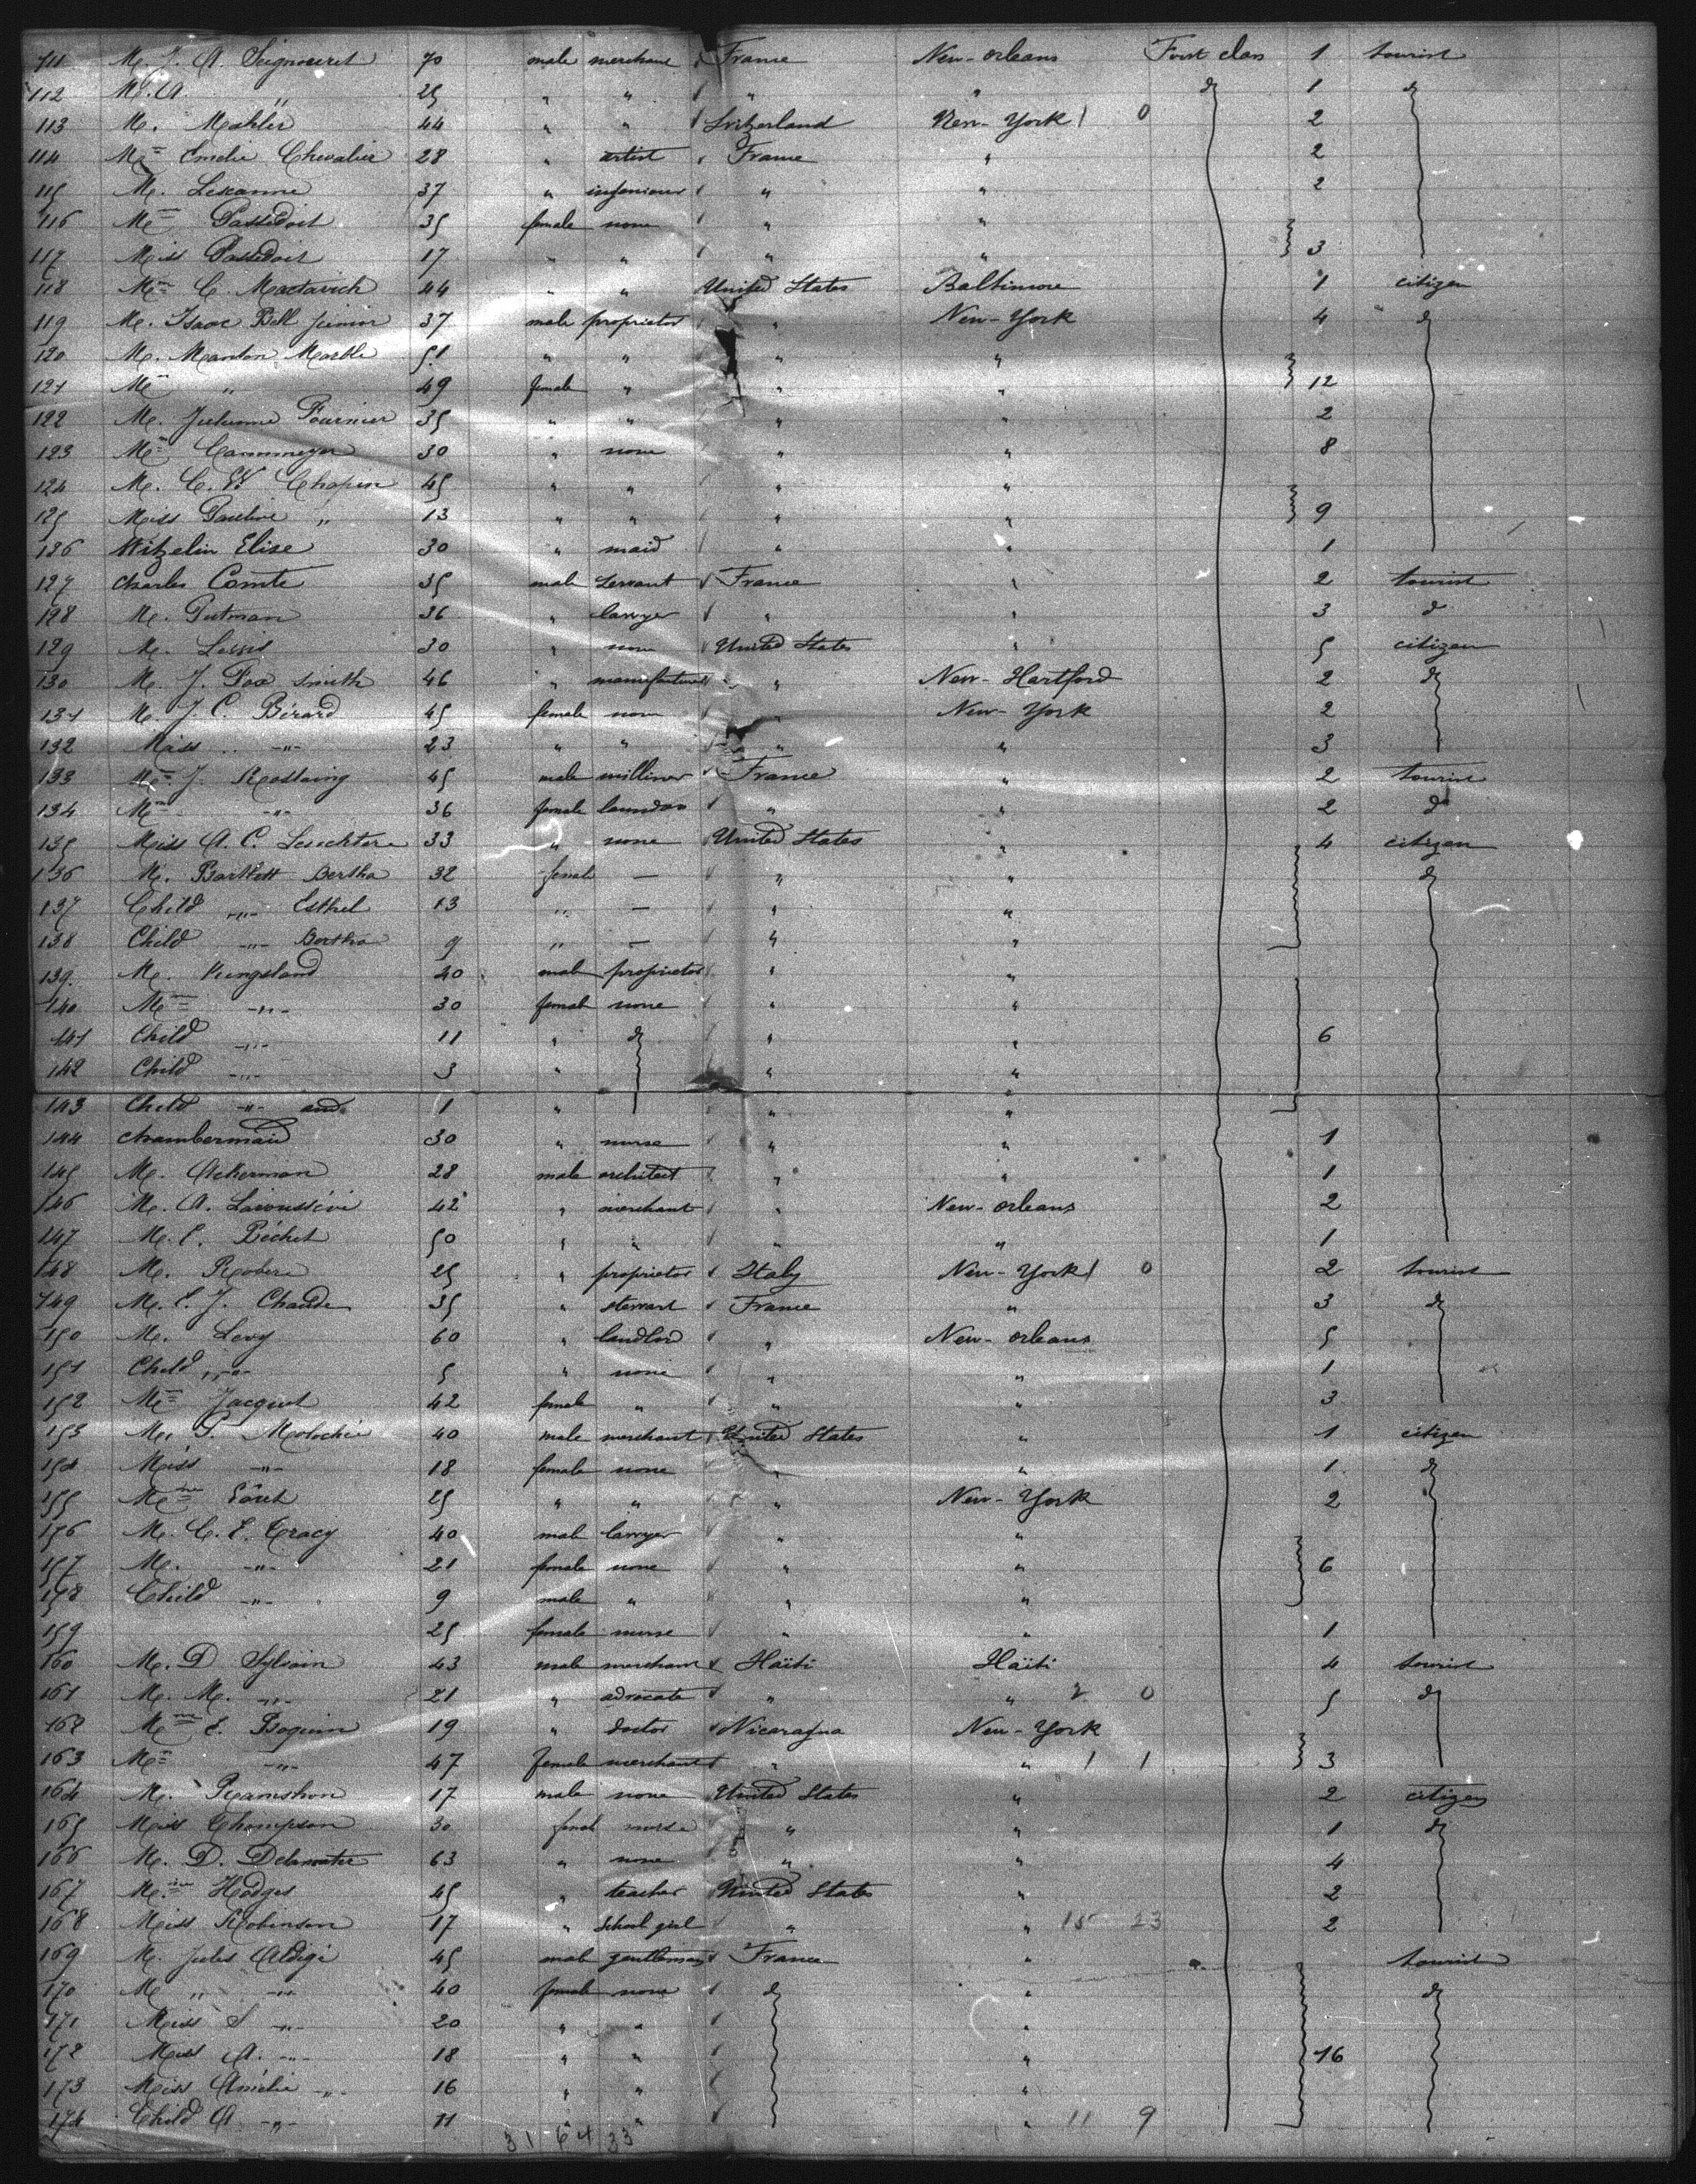 111 M. J. A. Seignouret 70 male merchant France New-Orleans First class 1 tourist
112 M. A. " 25 " " " " d° 1 d°
113 M. Mahler 44 " " Switzerland New-York 1 0 2
114 M me Emelie Chevalier 28 " artist France " 2
115 M. Lexanne 37 " ingenieur " " 2
116 M me Passedoit 35 female none " "
117 Miss Passedoit 17 " " " " 3
118 M me C. Mactavich 44 " " United States Baltimore 1 citizen
119 M. Isaac Bell junior 37 male proprietor " New-York 4 d°
120 M. Manton Marble 51 " " " "
121 M me " 49 female " " " 12
122 M. Fournier 35 " " " " 2
123 M me Cammeyer 30 " none " " 8
124 M. C. W Chapin 45 " " " "
125 Miss Pauline " 13 " " " " 9
126 Witzelin Elise 30 " maid " " 1
127 Charles Comte 35 male servant France " 2 tourist
128 M. Putman 36 " lawyer " " 3 d°
129 M. Lewis 30 " none United States " 5 citizen
130 M. J. Fox Smith 46 " manufacturer " New-Hartford 2 d°
131 M. J. C. Bérard 45 female none " New-York 2
132 Miss " 23 " " " " 3
133 M me J. Rostaing 45 male milliner France " 2 tourist
134 M me " 36 female " " 2 d°
135 Miss A. C. 33 " none United States " 4 citizen
136 M. Bartlett Bertha 32 female — " " d°
137 Child " Esthel 13 " — " "
138 Child " Bertha 9 " — " "
139. M. Kingsland 40 male proprietor " "
140 M me " 30 female none " "
141 Child " 11 " d° " " 6
142 Child " 3 " " "
143 Child " and 1 " " "
144 chambermaid 30 " nurse " " 1
145 M. Ackerman 28 male architect " " 1
146 M. A. Laroussini 42 " merchant " New-Orleans 2
147 M. E. Béchet 50 " " " " 1
148 M. 25 " proprietor Italy New-York 1 0 2 tourist
149 M. E. J. Chaude 35 " stewart France " 3 d°
150 M. Levy 60 " landlord " New-Orleans 5
151 Child " 5 " none " " 1
152 M me Jacquet 42 female " " " 3
153 M. P. Malochée 40 male merchant United States " 1 citizen
154 Miss " 18 female none " " 1 d°
155 M me 25 " " " New-York 2
156 M. C. E. Tracy 40 male lawyer " "
157 M. " 21 female none " " 6
158 Child " 9 male " " "
159 25 female nurse " " 1
160 M. D Sylvain 43 male merchant Haïti Haïti 4 tourist
161 M. M. " 21 " advocate " " 2 0 5 d°
162 M me E. 19 " doctor Nicaragua New-York
163 M me " 47 female merchant " " 1 1 3
164 M. 17 male none United States " 2 citizen
165 Miss Thompson 30 female nurse " " 1 d°
166 M. D. Delamater 63 " none " " 4
167 M me Hodges 45 " teacher United States " 2
168 Miss Robinson 17 " School girl " " 15 23 2
169 M. Jules Aldigé 45 male gentleman France " tourist
170 M " " 40 female none d° " d°
171 Miss S " 20 " " "
172 Miss A. " 18 " " " 16
173 Miss Amélie " 16 " " "
174 Child A " 11 " " " 11 9
31 64 33